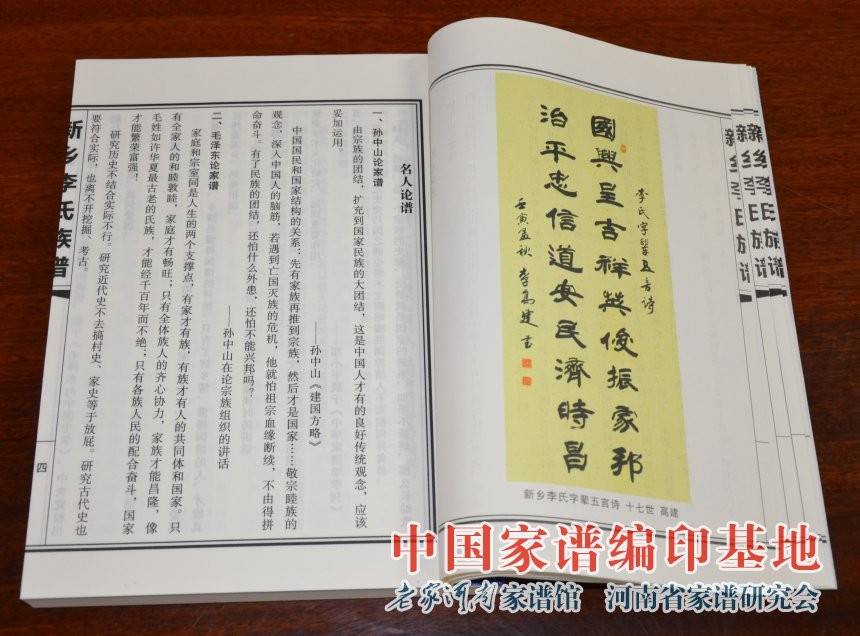 國興呈吉祥英俊振家邦
治平忠信道安民濟時昌
李氏字輩五言诗
壬寅孟秋 李高建书
新乡李氏字辈五言诗 十七世 高建
新乡李氏族谱
新乡李氏族谱
新乡李氏族谱
名人论谱
一、孙中山论家谱
由宗族的团结，扩充到国家民族的大团结，这是中国人才有的良好传统观念，应该
妥加运用。
——孙中山《建国方略》
中国国民和国家结构的关系：先有家族再推到宗族，然后才是国家……敬宗睦族的
观念，深入中国人的脑筋，若遇到亡国灭族的危机，他就怕祖宗血缘断续，不由得拼
命奋斗。有了民族的团结，还怕什么外患，还怕不能兴邦吗？
——孙中山在论宗族组织的讲话
二、毛泽东论家谱
家庭和宗室同是人生的两个支撑点，有家才有族，有族才有人的共同体和国家。只
有全家人的和睦敦睦，家庭才有畅旺；只有全体族人的齐心协力，家族才能昌隆，像
毛姓如许华夏最古老的氏族，才能经千百年而不绝；只有各族人民的配合奋斗，国家
才能繁荣富强！
研究历史不结合实际不行。研究近代史不去搞村史、家史等于放屁。研究古代史也
要符合实际，也离不开挖掘、考古。
新乡李氏族普
四
中国家谱编印基地
老家河南家谱馆 河南省家谱研究会